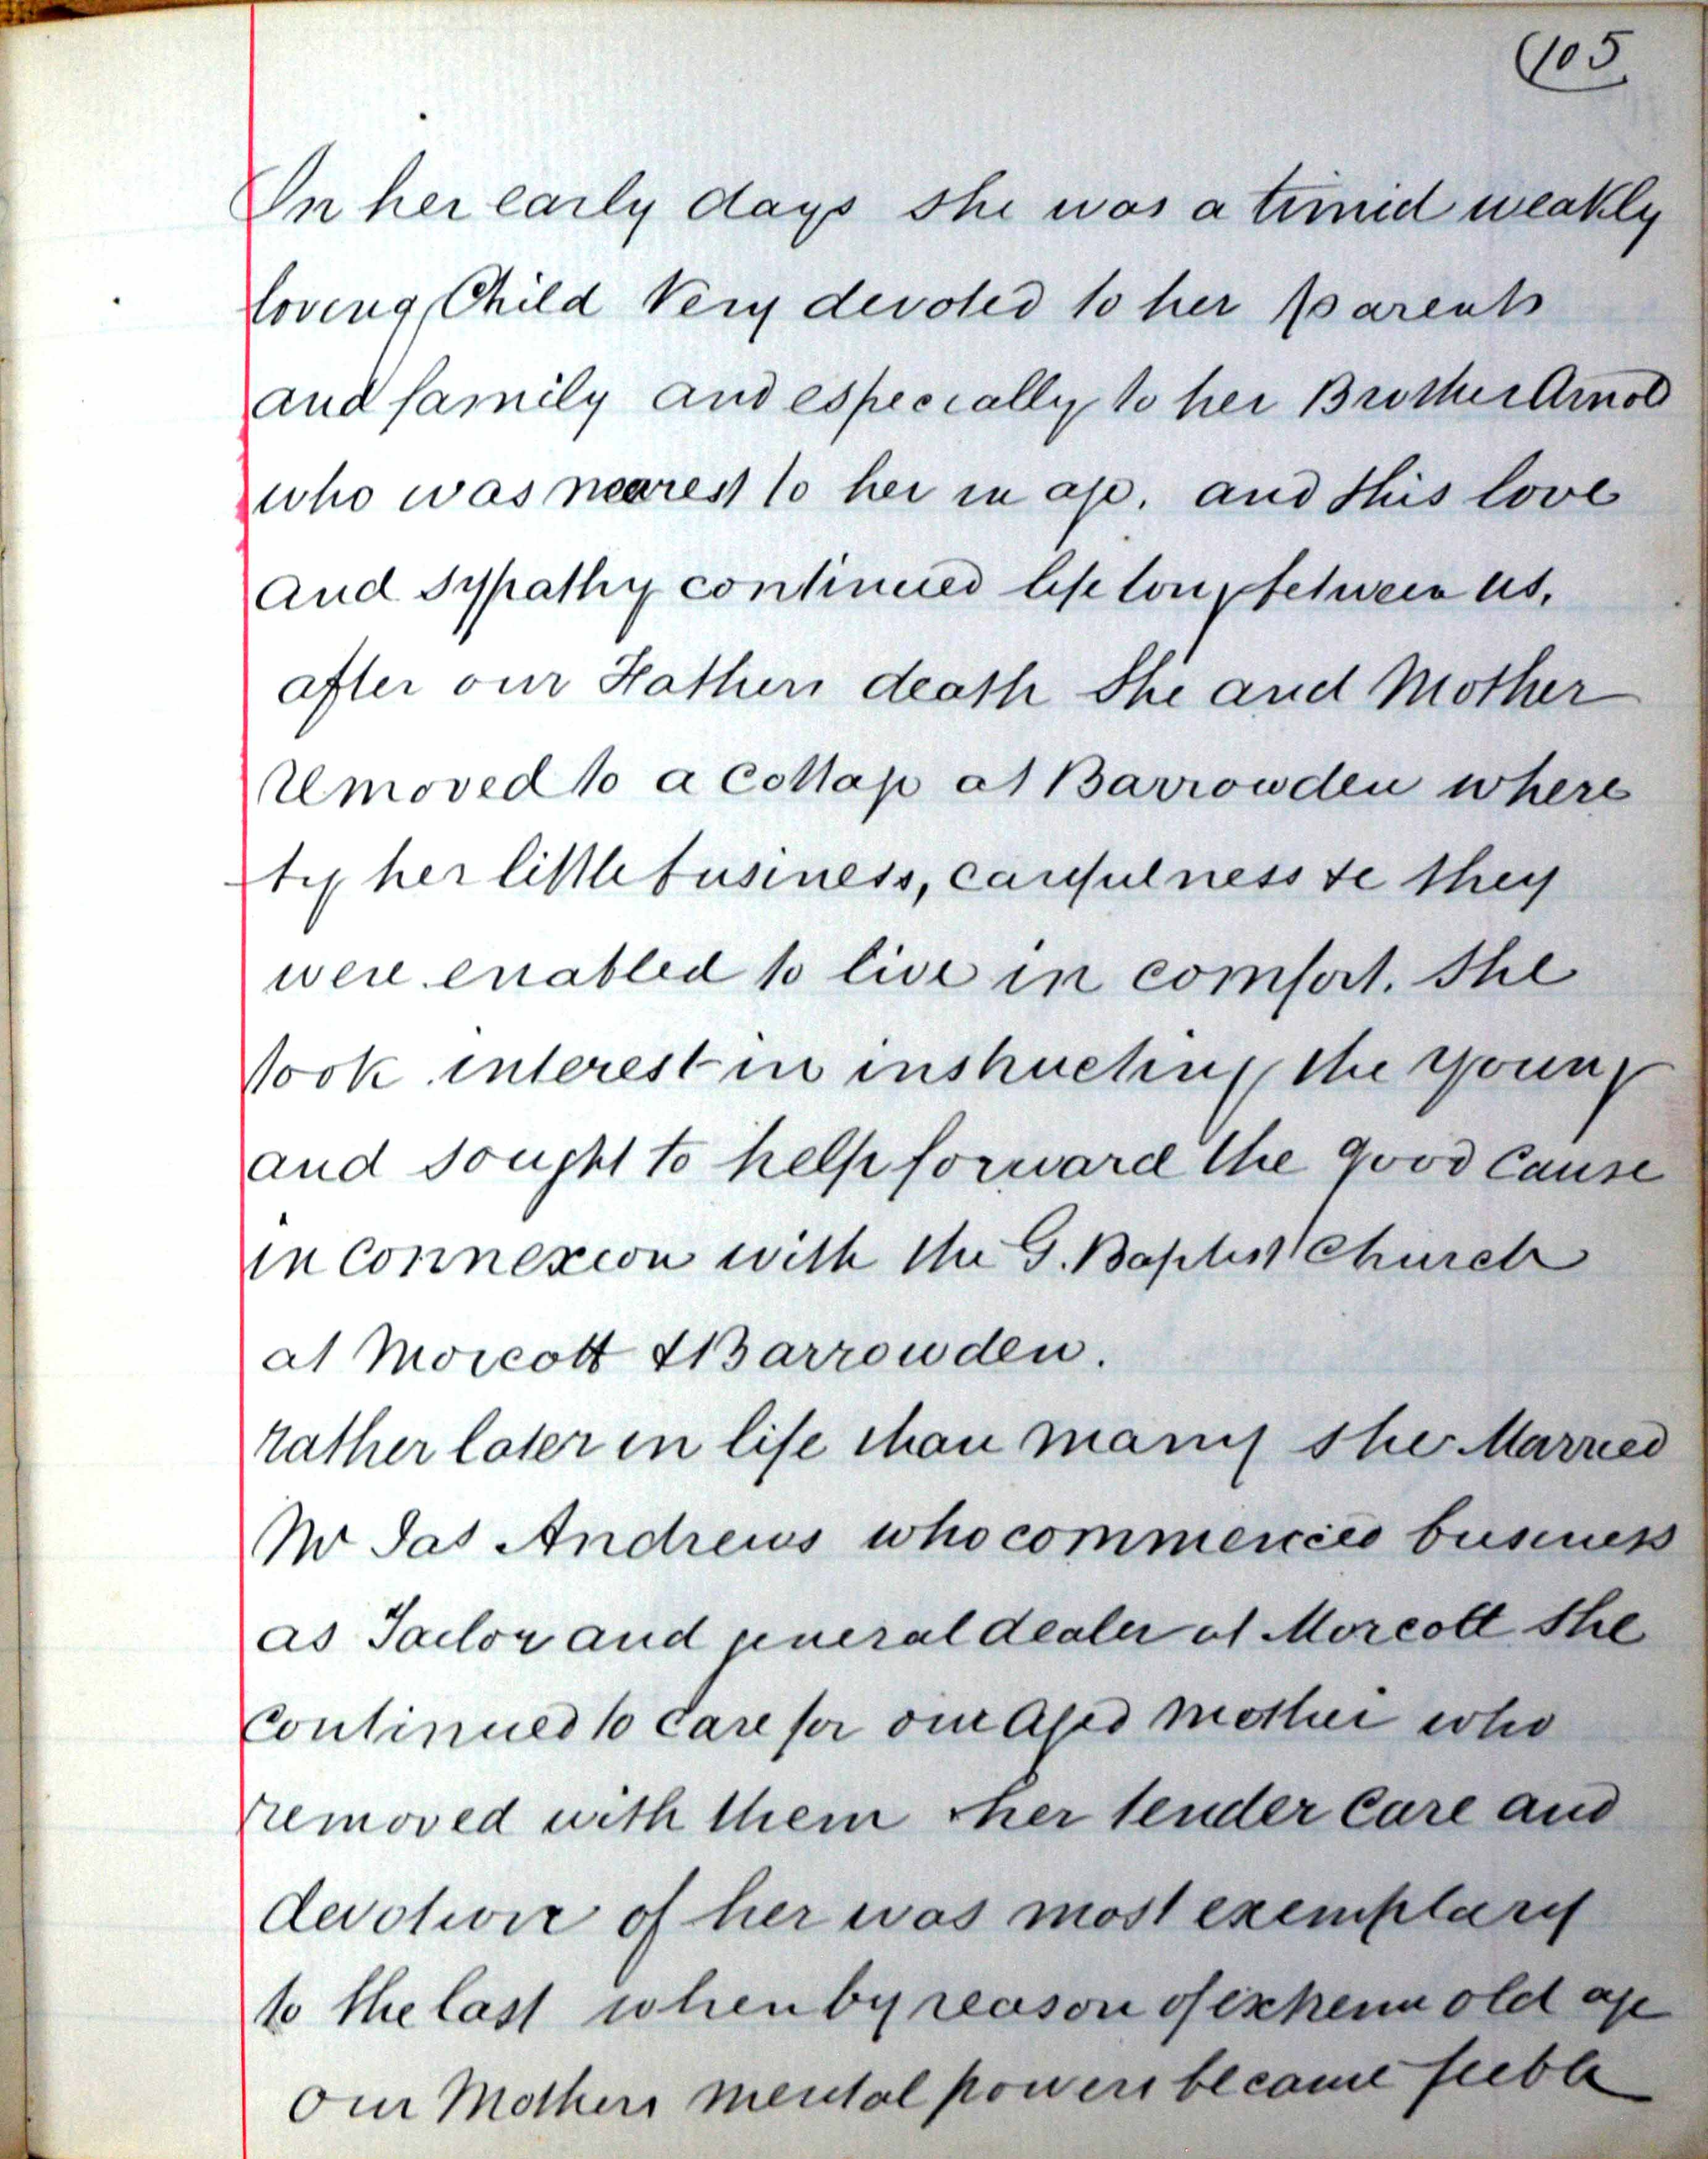 (105
In her early days she was a timid weakly
loving Child Very devoted to her parents
and family and especially to her Brother Arnold
who was nearest to her in age. and this love
and sypathy continued life long between us,
after our Fathers death She and Mother
removed to a Cottage at Barrowden where
by her little business, carefulness &c they
were enabled to live in comfort. She
took interest in instructing the young
and sought to help forward the good Cause
in Connexion with the G. Baptist Church
at Morcott & Barrowden.
rather later in life than many she Married
Mr Jas Andrews who commenced business
as Tailor and general dealer at Morcott She
Continued to care for our Aged Mother who
removed with them her tender Care and
devotion of her was most exemplary
to the last when by reason of extreme old age
our Mothers mental powers became feeble